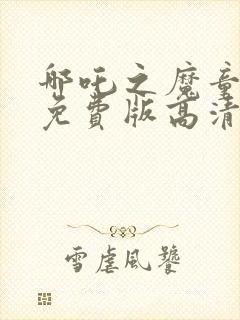 哪吒之魔童
免費版高清
雪虐風饕